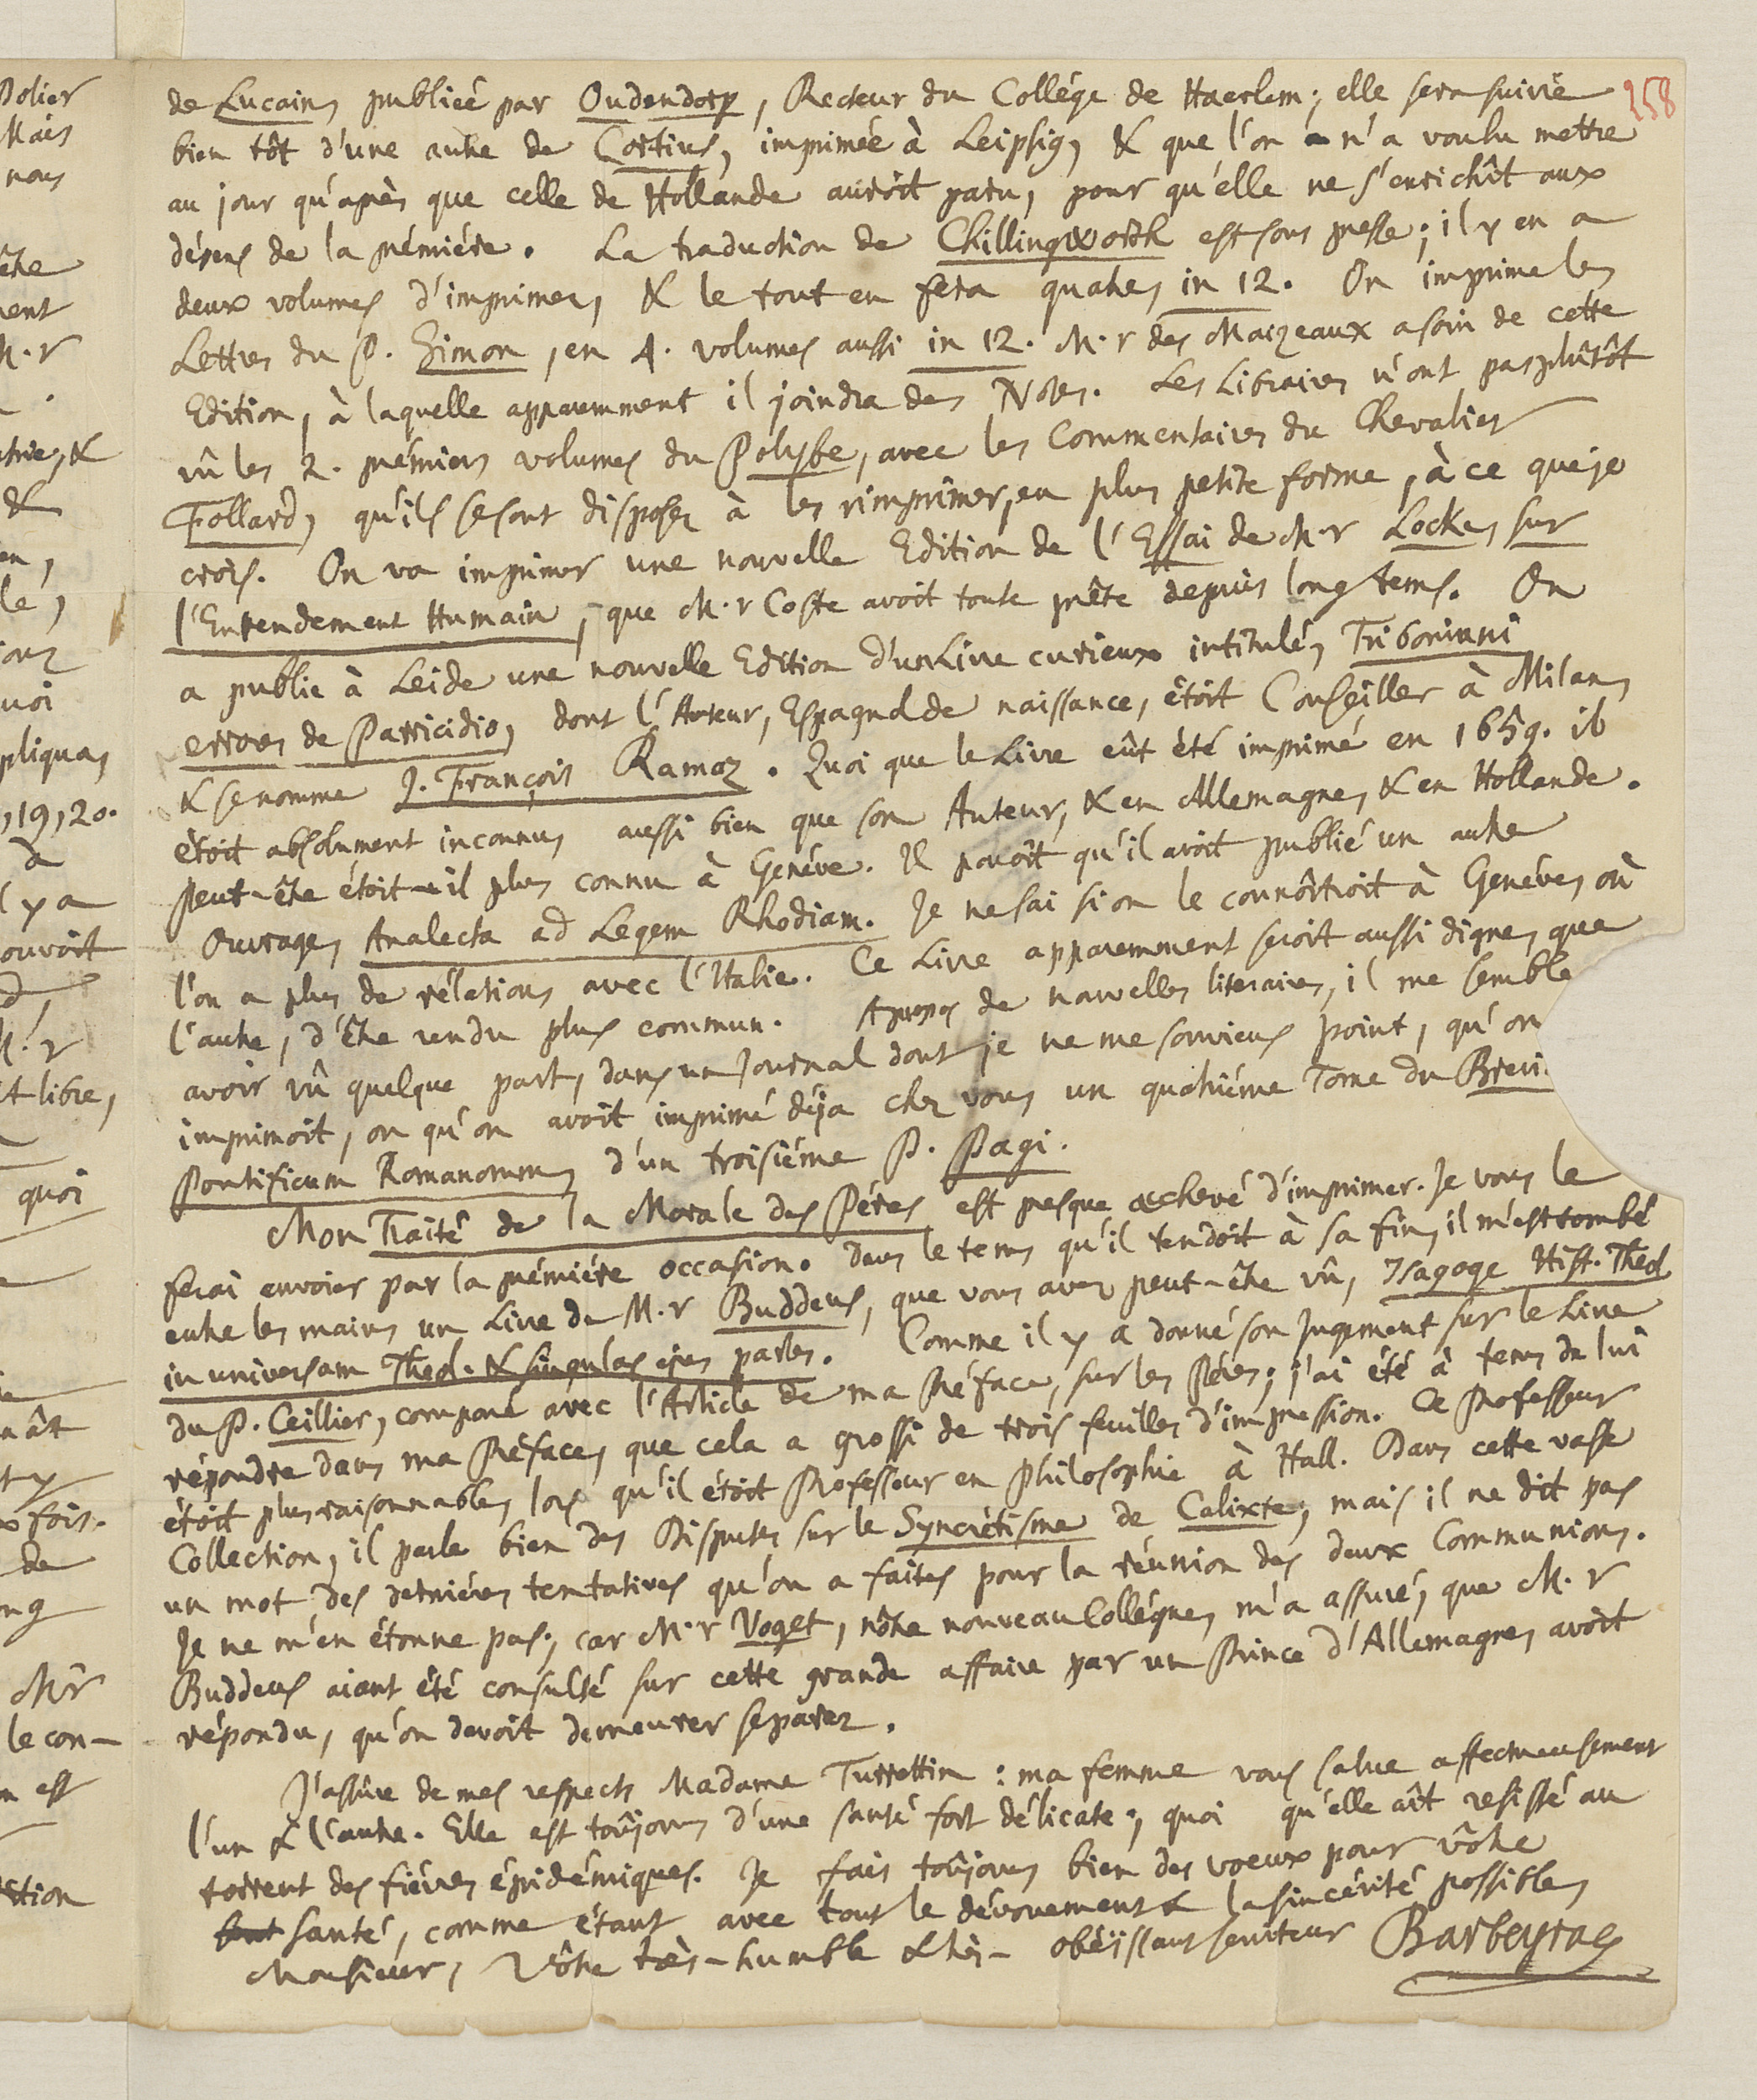 258
de Lucain, publiée par Oudendorp, Recteur du Collége de Haerlem; elle sera suivie
bien tôt d'une autre de Cortius, imprimée à Leipsig, & que l'on n'a voulu mettre
au jour qu'après que celle de Hollande auroit paru, pour qu'elle ne s'enrichît aux
dépens de la prémiére. La traduction de Chillingworth est sous presse; il y en a
deux volumes d'imprimez, & le tout en fera quatre, in 12. On imprime les
Lettres du P. Simon, en 4. volumes aussi in 12. M.r des Maizeaux a soin de cette
Edition, à laquelle apparemment il joindra des Notes. Les Libraires n'ont pas plûtôt
vû les 2. prémiers volumes du Polybe, avec les Commentaires du Chevalier
Follard, qu'ils se sont disposez à les rimprimer, en plus petite forme, à ce que je
crois. On va imprimer une nouvelle Edition de l'Essai de M.r Locke, sur
l'Entendement Humain, que M.r Coste avoit toute prête depuis long tems. On
a publie à Leide une nouvelle Edition d'un Livre curieux intitulé, Triboniani
errores de Parricidio, dont l'Auteur, Espagnol de naissance, étoit Conseiller à Milan,
& se nomme J. François Ramoz. Quoi que le Livre eût été imprimé en 1659. il
étoit absolument inconnu, aussi bien que son Auteur, & en Allemagne, & en Hollande.
Peut-être étoit-il plus connu à Genéve. Il paroît qu'il avoit publié un autre
Ouvrage, Analecta ad Legem Rhodiam. Je ne sai si on le connôitroit à Genéve, où
l'on a plus de rélations avec l'Italie. Ce Livre apparemment seroit aussi digne, que
l'autre, d'être rendu plus commun. Apropos de nouvelles literaires, il me semble
avoir vû quelque part, dans un Journal dont je ne me souviens point, qu'on
imprimoit, ou qu'on avoit imprimé déja chez vous un quatriéme Tome du Brevi.
Pontificum Romanorum, d'un troisiéme P. Pagi.
Mon Traité de la Morale des Péres est presque achevé d'imprimer. Je vous le
ferai envoier par la prémiére occasion. Dans le tems qu'il tendoit à sa fin, il m'est tombé
entre les mains un Livre de M.r Buddeus, que vous avez peut-être vû, Isagoge Hist. Theol.
in universam Theol. & singulas ejus partes. Comme il y a donné son Jugement sur le Livre
du P. Ceillier, comparé avec l'Article de ma Préface, sur les Péres; j'ai été à tems de lui
répondre dans ma Préface, que cela a grossi de trois feuilles d'impression. Ce Professeur
étoit plus raisonnable, lors qu'il étoit Professeur en Philosophie à Hall. Dans cette vaste
Collection, il parle bien des Disputes sur le Syncrétisme de Calixte; mais il ne dit pas
un mot des derniéres tentatives qu'on a faites pour la réunion des deux Communions.
Je ne m'en étonne pas; car M.r Voget, nôtre nouveau Collégue, m'a assuré, que M.r
Buddeus aiant été consulté sur cette grande affaire par un Prince d'Allemagne, avoit
répondu, qu'on devoit demeurer separez.
J'assûre de mes respects Madame Turrettin: ma femme vous salue affectueusement
l'un & l'autre. Elle est toûjours d'une santé fort délicate; quoi qu'elle aît resisté au
torrent des fiévres épidémiques. Je fais toûjours bien des voeux pour vôtre
santé, comme étant avec tout le dévouement & la sincérité possible,
Monsieur, Vôtre très-humble & très-obéïssant serviteur Barbeyrac
Mais
nous
être
M.r
&
quoi
, 19, 20.
l y a
M.r
t libre,
quoi
fois.
de
Mr
le con-
n est